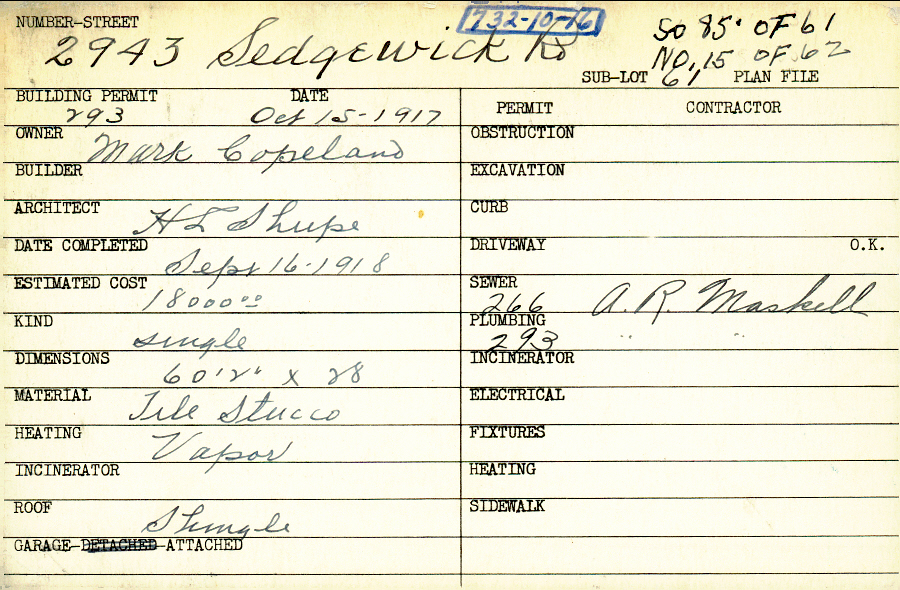 NUMBER-STREET
732-10-16
2943 Sedgewick Rd
So 85' OF 61
NO. 15 OF 62
SUB-LOT 61 PLAN FILE
BUILDING PERMIT DATE
293 Oct 15-1917
OWNER Mark Copeland
BUILDER
ARCHITECT H L Shupe
DATE COMPLETED Sept 16-1918
ESTIMATED COST 18000 00
KIND single
DIMENSIONS 60'2" x 28
MATERIAL Tile Stucco
HEATING Vapor
INCINERATOR
ROOF Shingle
GARAGE-DETACHED-ATTACHED
PERMIT CONTRACTOR
OBSTRUCTION
EXCAVATION
CURB
DRIVEWAY O.K.
SEWER
266 A. R. Maskell
PLUMBING
293 " "
INCINERATOR
ELECTRICAL
FIXTURES
HEATING
SIDEWALK